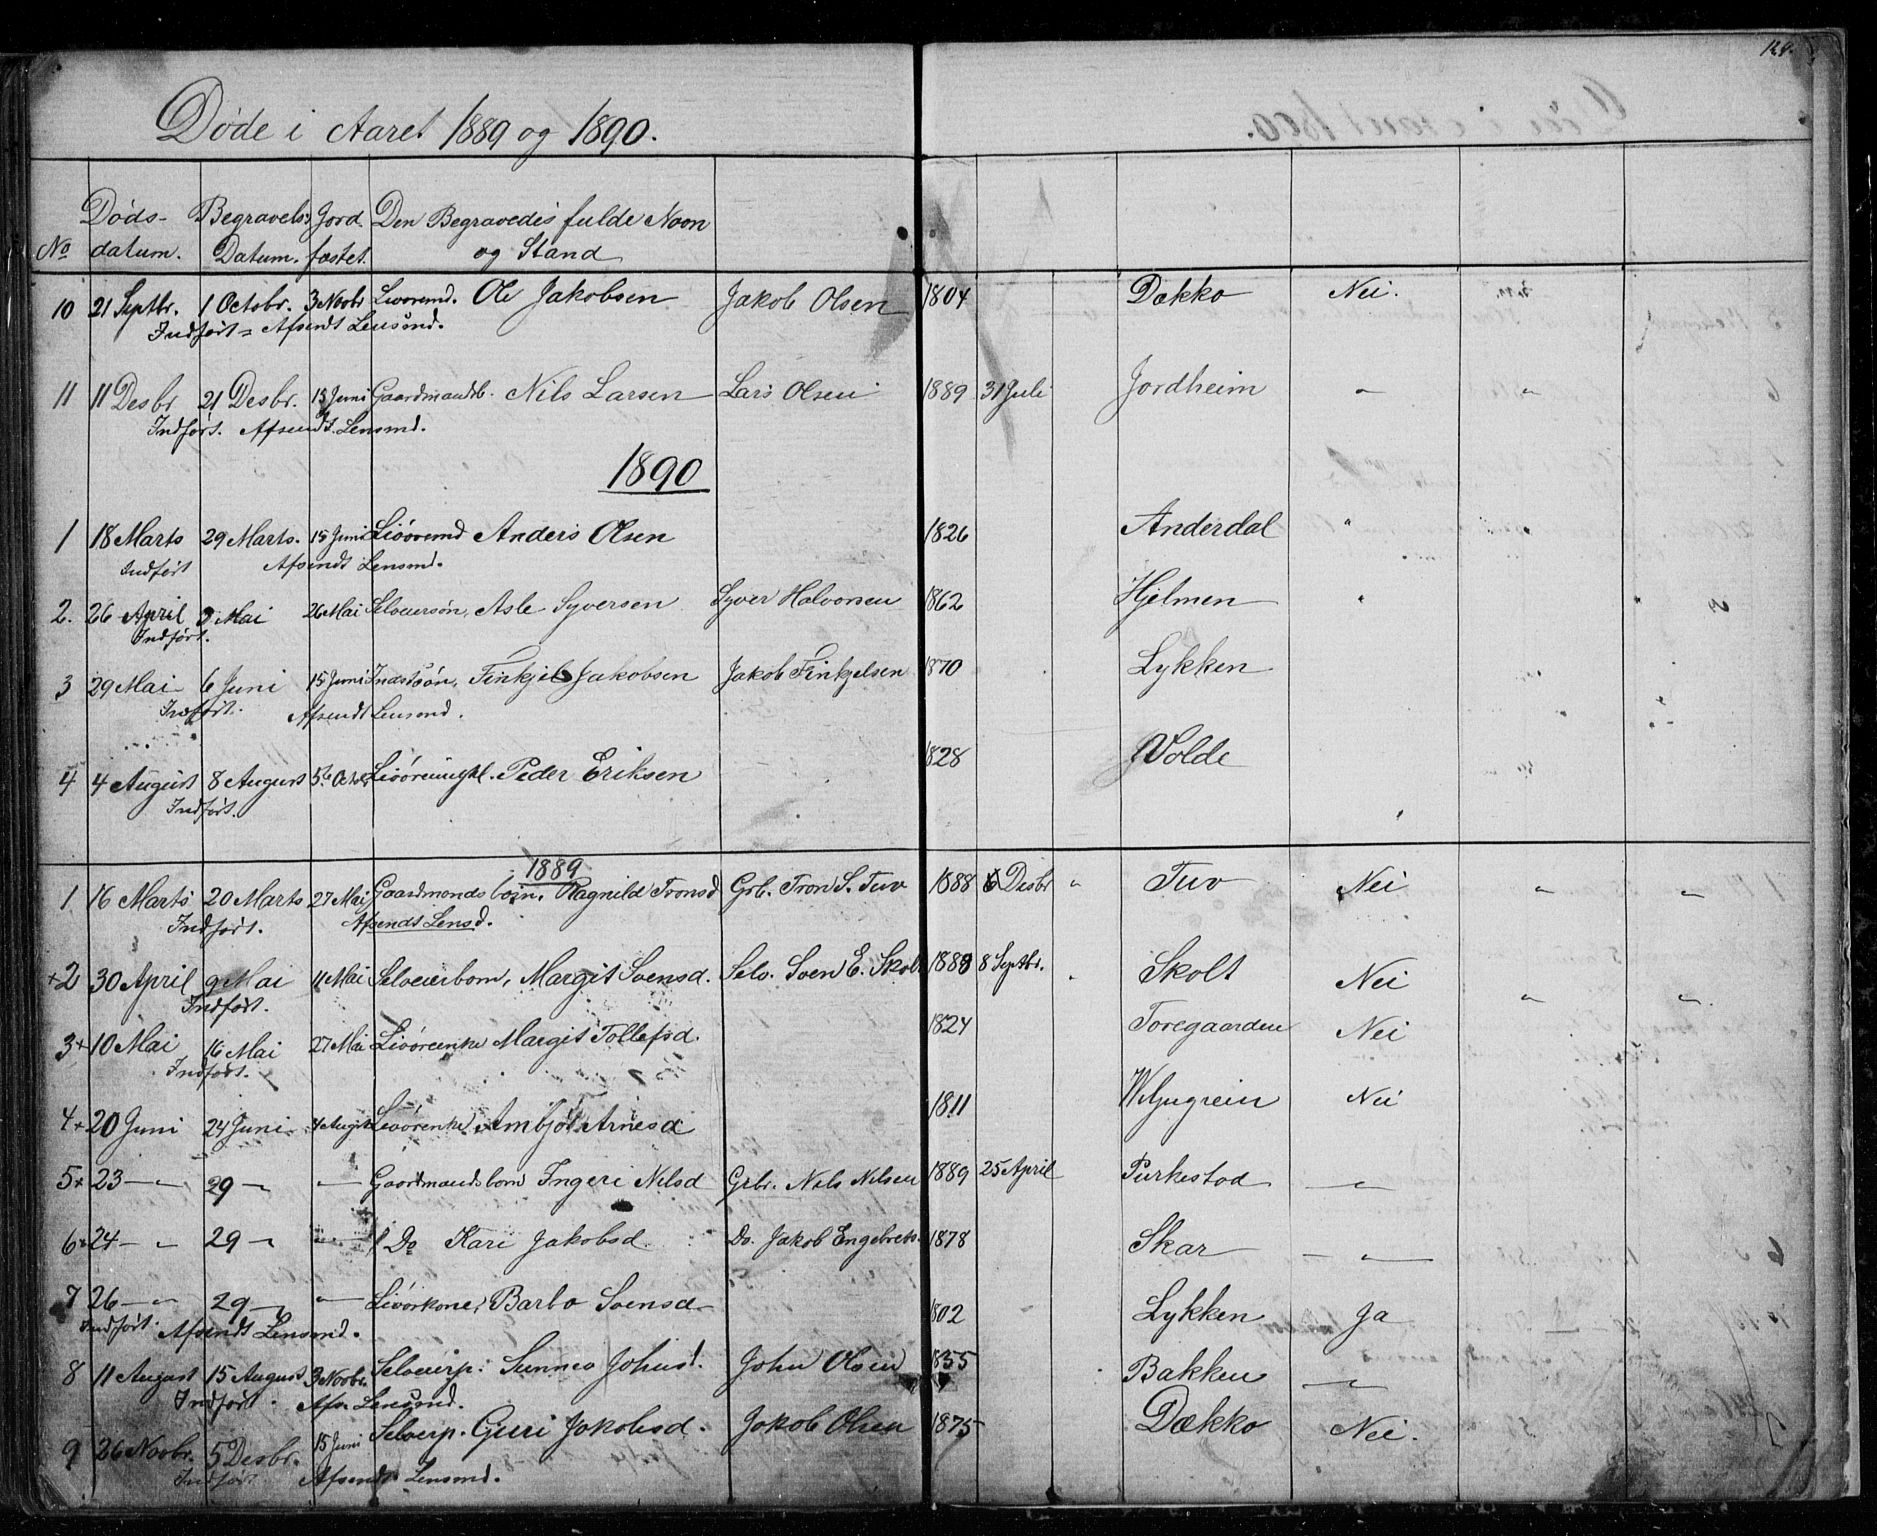 124.
Døde i Aaret 1889 og 1890.
No Døds- datum. Begravels: Datum. Jord fæstet. Den Begravedes fulde Navn og Stand
10 21 Septbr. 1 Octobr. 3 Novbr Livøremd. Ole Jakobsen Jakob Olsen 1804 Dekko Nei.
Indført = Afsendt Lensmd.
11 11 Desbr 21 Desbr. 15 Juni Gaardmandsb. Nils Larsen Lars Olsen 1889 31 Juli Jordheim " "
Indført. Afsendt Lensmd.
1890
1 18 Marts 29 Marts. 15 Juni Livøremd Anders Olsen 1826 Anderdal "
Indført Afsendt Lensmd.
2. 26 April 3 Mai 26 Mai Selveiersøn, Asle Syversen Syver Halvorsen 1862 Hjelmen "
Indført.
3 29 Mai 6 Juni 15 Juni Indstsøn, Finkjel Jakobsen Jakob Finkjelsen 1870 Lykken
Indført. Afsendt Lensmd.
4 4 August 8 August 5 Octbr Livøreungkl. Peder Eriksen 1828 Volde
Indført.
1889
1 16 Marts 20 Marts 27 Mai Gaardmandsbarn. Ragnild Tronsd Grb. Tron S. Tuv 1888 6 Desbr " Tuv Nei " "
Indført. Afsendt Lensd.
+2 30 April 9 Mai 11 Mai Selveierbarn, Margit Svensd. Selv. Sven E. Skolt 1888 8 Septbr. Skolt Nei " "
Indført.
3+ 10 Mai 16 Mai 27 Mai Livøreenke Margit Tollefsd. 1824 Toregaarden Nei
Indført.
4+ 20 Juni 24 Juni 4 August Livørenke Ambjør Arnesd 1811 Wiljugrein Nei
5+ 23 — " 29 — " — Gaardmandsbarn Ingeri Nilsd Grbr. Nils Nilsen 1889 25 April Purkestad — "
6+ 24 — " 29 — " — " Do Kari Jakobsd Do. Jakob Engebrets. 1878 Skar — "
7 26 — " 29 — " — Livørkone, Barbo Svensd 1802 Lykken Ja
Indført. Afsendt Lensmd.
8 11 August 15 August 3 Novbr. Selveierp. Sunnev Johnsd. John Olsen 1855 Bakken — "
Indført. Afs. Lensmd.
9 26 Novbr. 5 Desbr. 15 Juni Selveierp. Guri Jakobsd. Jakob Olsen 1875 Dækko Nei.
Indført. Afsendt Lensmd.